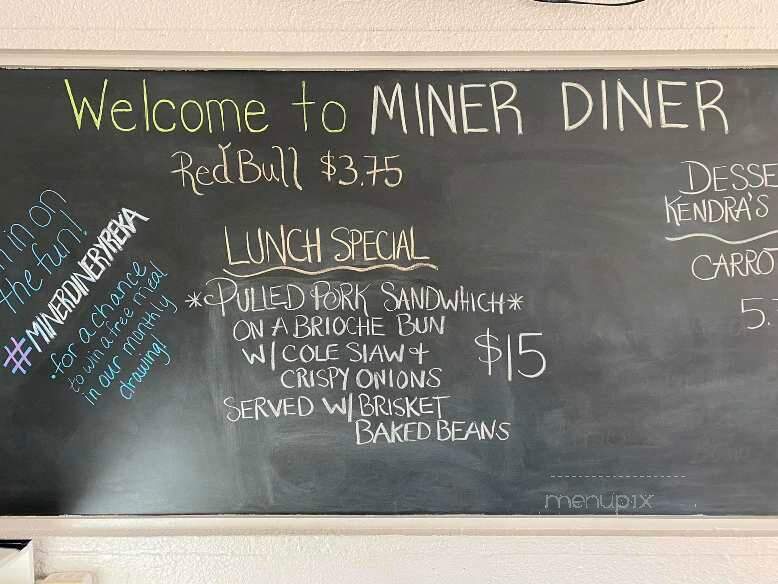 Welcome to MINER DINER
Red Bull $3.75
in on
the fun!
#MINERDINERYREKA
for a chance
to win a free meal
in our monthly
drawing!
LUNCH SPECIAL
*PULLED PORK SANDWHICH*
ON A BRIOCHE BUN
W/ COLE SLAW &
CRISPY ONIONS
SERVED W/ BRISKET
BAKED BEANS
$15
DESSE
KENDRA'S
CARRO
5.
menupix